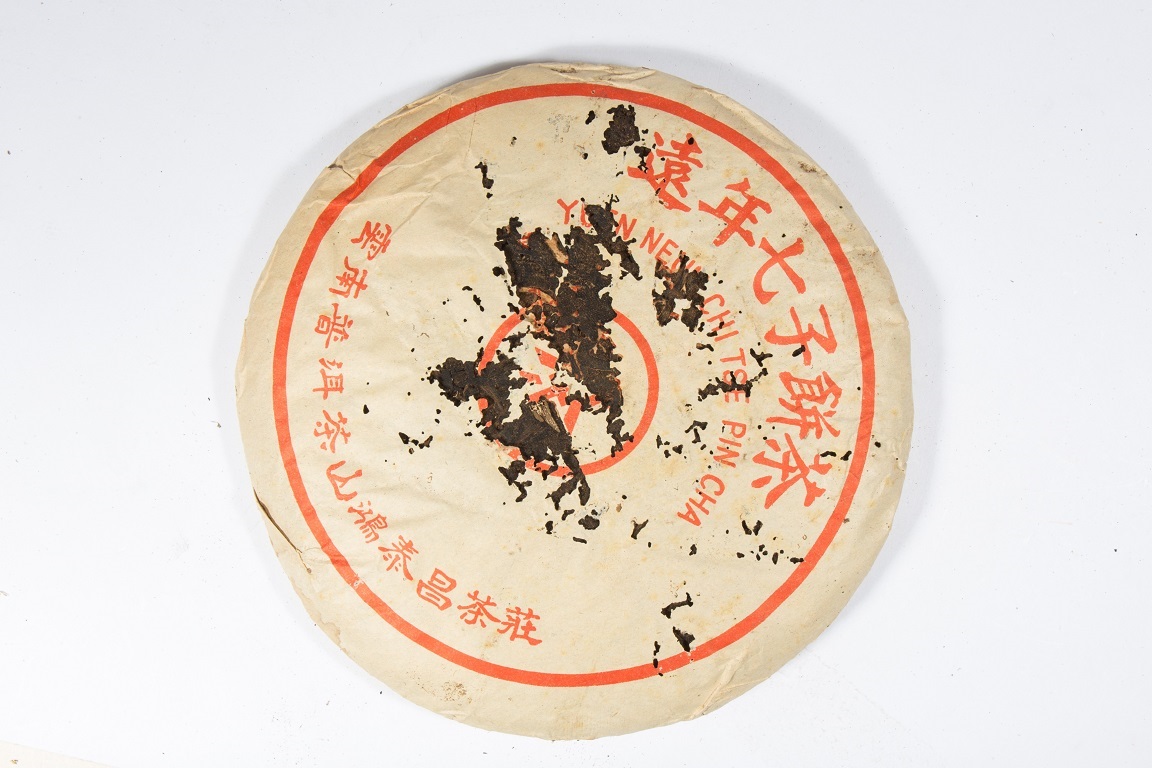 遠年七子餅茶
CHI TSE PIN CHA
雲南普洱茶山鴻泰昌茶莊